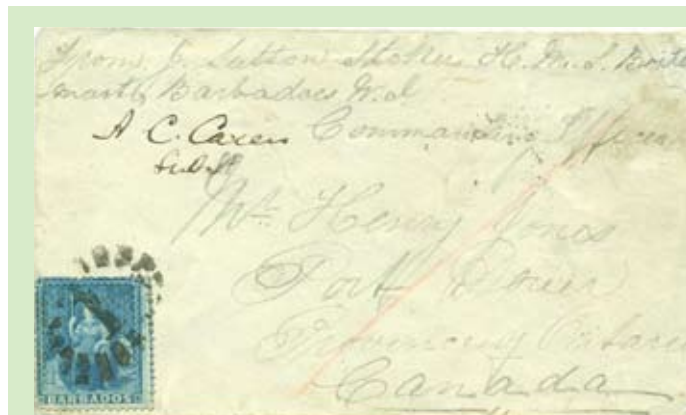 From J. Sutton Stoker H. M. S. Brito
mart Barbadoes W. I
A C. Caren Commanding Officer
Mr Henry Jones
Port Dover
Province Ontario
Canada
BARBADOS